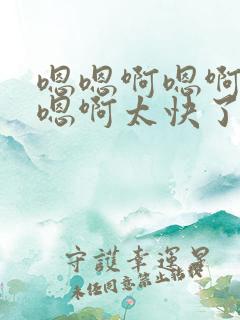 嗯嗯啊嗯啊
嗯啊太快了
守護幸運星
未经同意禁止转载